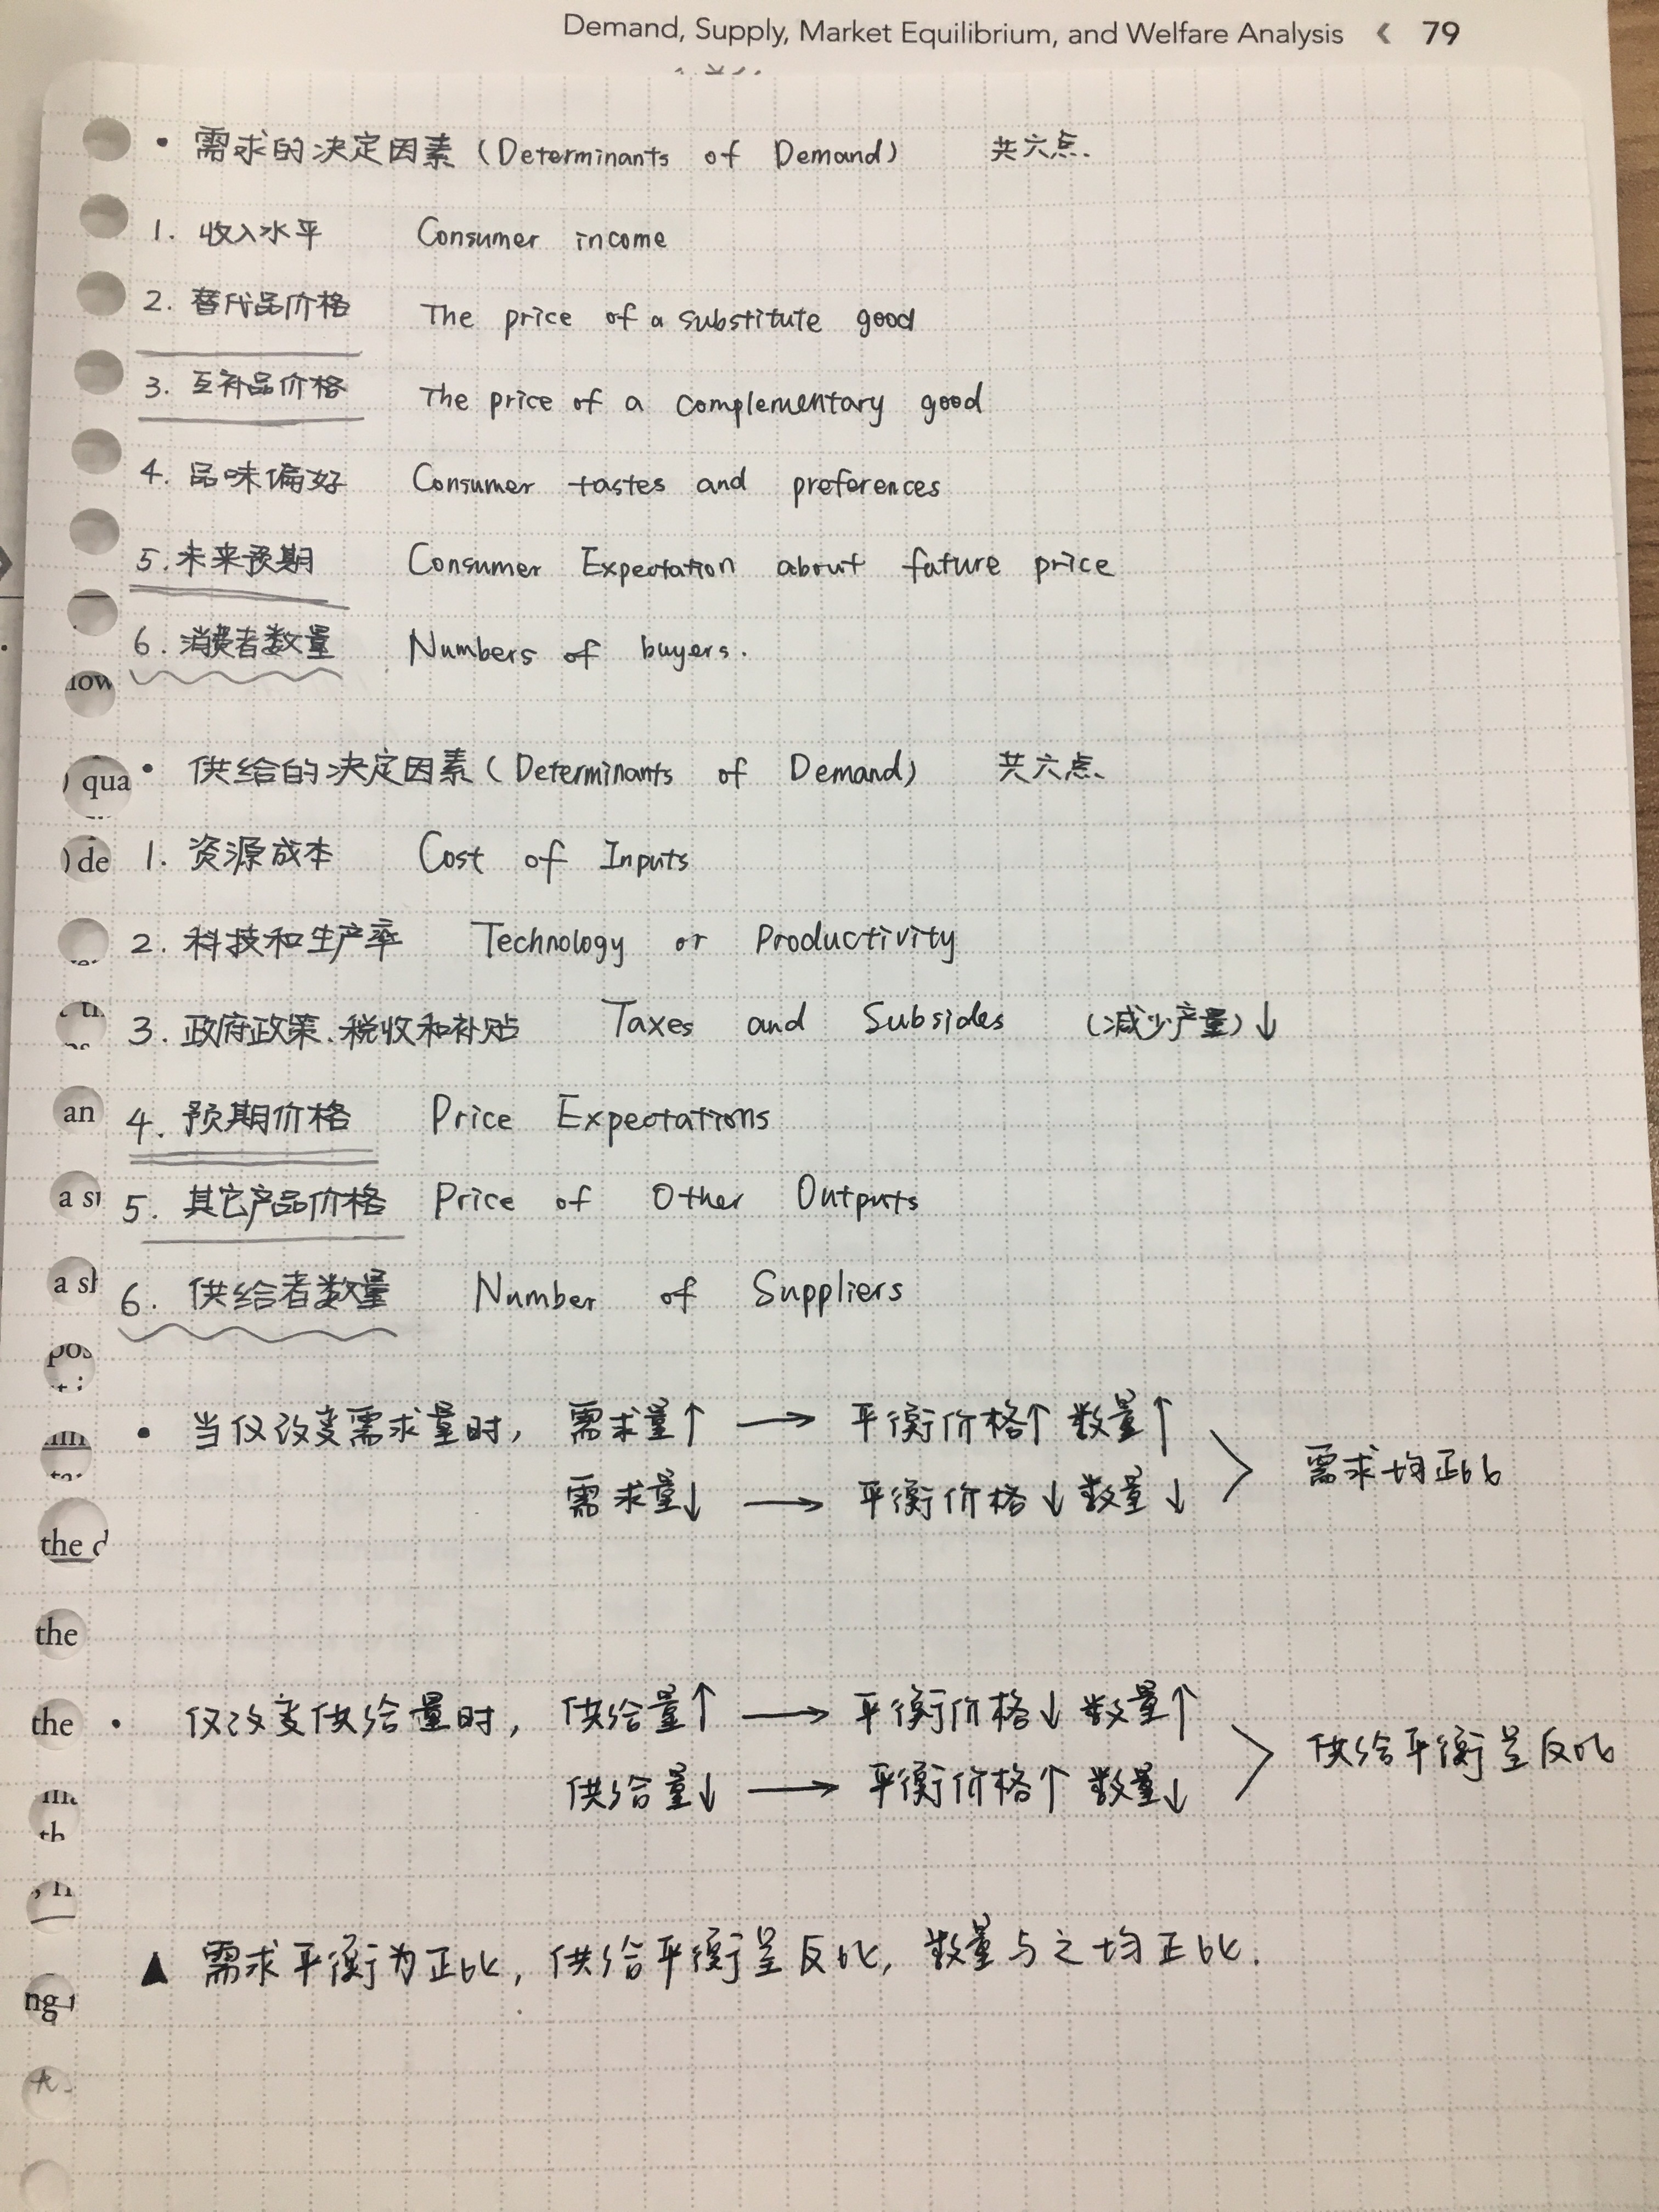 Demand, Supply, Market Equilibrium, and Welfare Analysis < 79
• 需求的决定因素 (Determinants of Demand) 共六点.
1. 收入水平 Consumer income
2. 替代品价格 The price of a substitute good
3. 互补品价格 The price of a complementary good
4. 品味偏好 Consumer tastes and preferences
5. 未来预期 Consumer Expectation about future price
6. 消费者数量 Numbers of buyers.
low
) qua
• 供给的决定因素 (Determinants of Demand) 共六点
) de
1. 资源成本 Cost of Inputs
2. 科技和生产率 Technology or Productivity
3. 政府政策.税收和补贴 Taxes and Subsides (减少产量)↓
an
4. 预期价格 Price Expectations
a su
5. 其它产品价格 Price of Other Outputs
a sh
6. 供给者数量 Number of Suppliers
pos
• 当仅改变需求量时, 需求量↑ → 平衡价格↑ 数量↑
需求量↓ → 平衡价格↓ 数量↓ > 需求均正比
the d
the
the
• 仅改变供给量时, 供给量↑ → 平衡价格↓ 数量↑
供给量↓ → 平衡价格↑ 数量↓ > 供给平衡呈反比
▲ 需求平衡为正比, 供给平衡呈反比, 数量与之均正比.
ng